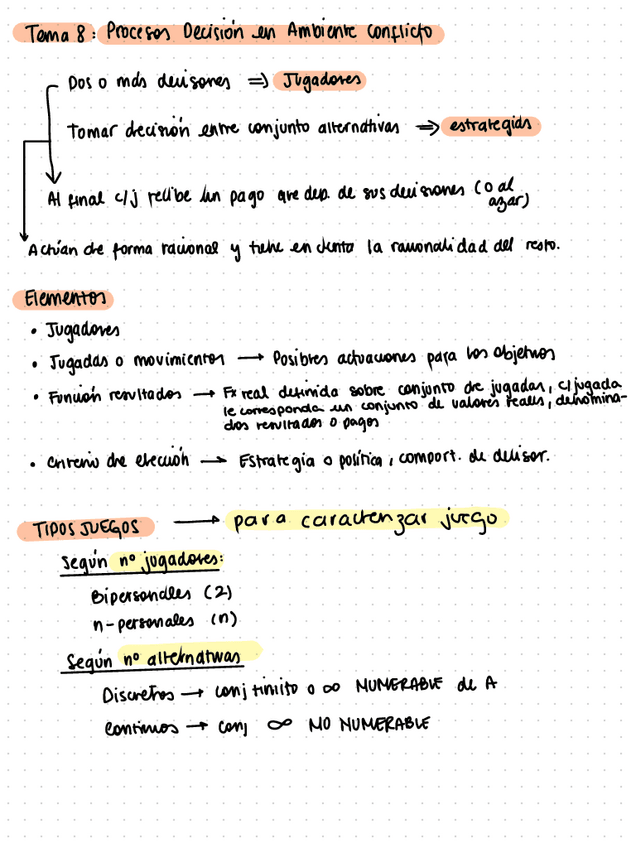 Tema 8: Procesos Decisión en Ambiente Conflicto
Dos o más decisores => Jugadores
Tomar decisión entre conjunto alternativas => estrategias
Al final c/j recibe un pago que dep. de sus decisiones (o al azar)
Actúan de forma racional y tiene en cuenta la racionalidad del resto.
Elementos
• Jugadores
• Jugadas o movimientos → Posibles actuaciones para los objetivos
• Función resultados → Fx real definida sobre conjunto de jugadas, c/jugada
le corresponda un conjunto de valores reales, denomina-
dos resultados o pagos
• Criterio de elección → Estrategia o política, comport. de decisor.
TIPOS JUEGOS → para caracterizar juego
Según nº jugadores:
Bipersonales (2)
n-personales (n)
Según nº alternativas
Discretos → conj finito o ∞ NUMERABLE de A
Continuos → conj ∞ NO NUMERABLE